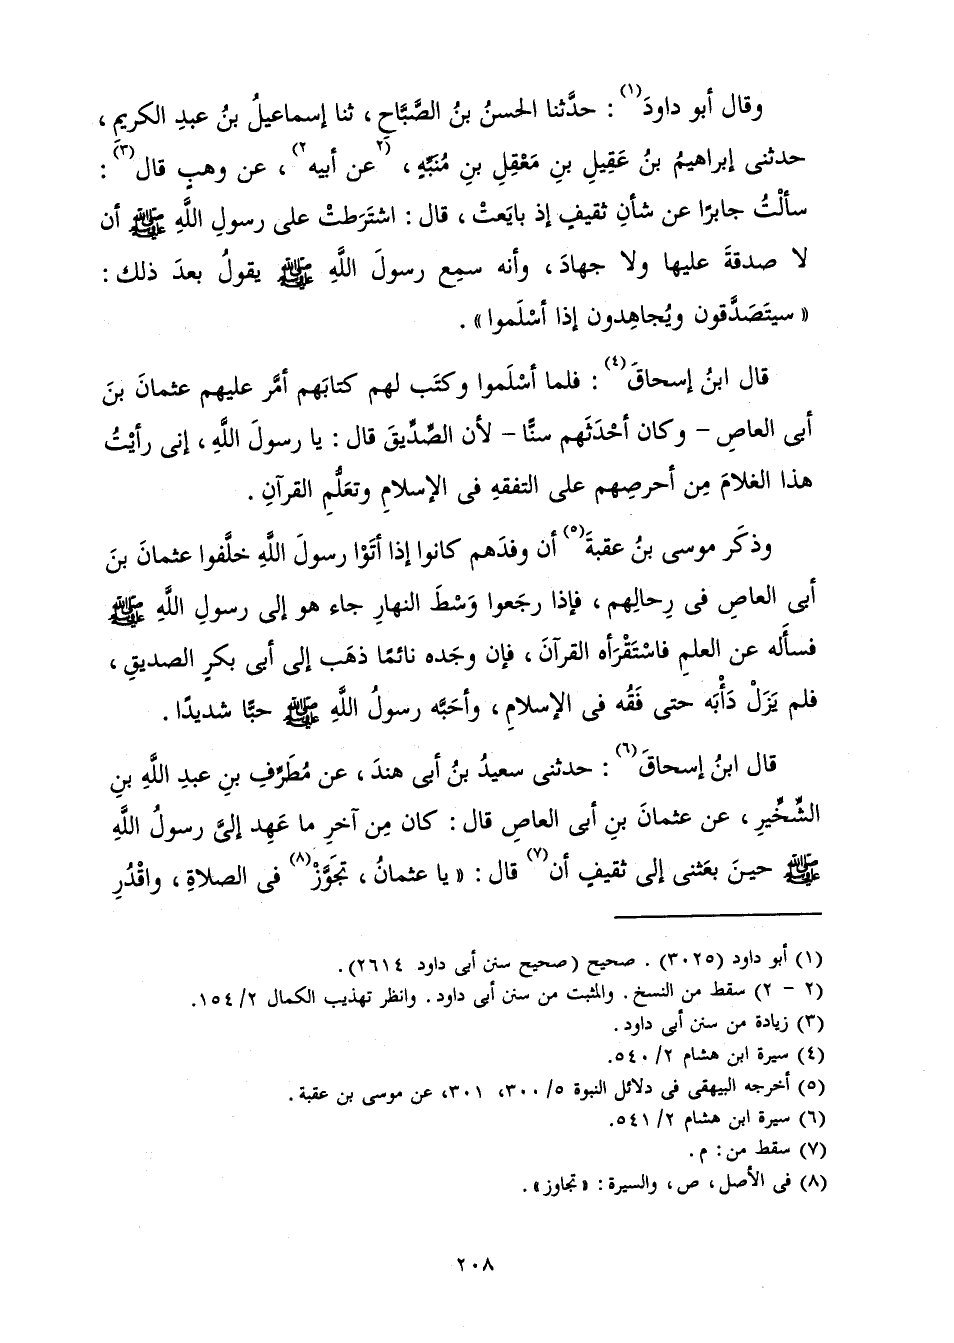 وقال أبو داودَ(١) : حدَّثنا الحسنُ بنُ الصَّبَّاحِ ، ثنا إسماعيلُ بنُ عبدِ الكريمِ ،
حدثنى إبراهيمُ بنُ عَقِيلِ بنِ مَعْقِلِ بنِ مُنَبِّهٍ ، (٢عن أبيه٢) ، عن وهبٍ قال(٣) :
سألْتُ جابرًا عن شأنِ ثقيفٍ إذ بايَعتْ ، قال : اشتَرطتْ على رسولِ اللَّهِ ﷺ أن
لا صدقةَ عليها ولا جهادَ ، وأنه سمِع رسولَ اللَّهِ ﷺ يقولُ بعدَ ذلك :
« سيتَصَدَّقون ويُجاهِدون إذا أسْلَموا » .
قال ابنُ إسحاقَ(٤) : فلما أسْلَموا وكتَب لهم كتابَهم أمَّر عليهم عثمانَ بنَ
أبى العاصِ – وكان أحْدَثَهم سنًّا – لأن الصِّدِّيقَ قال : يا رسولَ اللَّهِ ، إنى رأيْتُ
هذا الغلامَ مِن أحرصِهم على التفقهِ فى الإسلامِ وتعَلُّمِ القرآنِ .
وذكَر موسى بنُ عقبةَ(٥) أن وفدَهم كانوا إذا أتَوْا رسولَ اللَّهِ خلَّفوا عثمانَ بنَ
أبى العاصِ فى رِحالِهم ، فإذا رجَعوا وَسْطَ النهارِ جاء هو إلى رسولِ اللَّهِ ﷺ
فسأَله عن العلمِ فاسْتَقْرَأه القرآنَ ، فإن وجَده نائمًا ذهَب إلى أبى بكرٍ الصديقِ ،
فلم يَزَلْ دَأْبَه حتى فَقُه فى الإسلامِ ، وأحَبَّه رسولُ اللَّهِ ﷺ حبًّا شديدًا .
قال ابنُ إسحاقَ(٦) : حدثنى سعيدُ بنُ أبى هندَ ، عن مُطَرِّفِ بنِ عبدِ اللَّهِ بنِ
الشِّخِّيرِ ، عن عثمانَ بنِ أبى العاصِ قال : كان مِن آخرِ ما عَهِد إلىَّ رسولُ اللَّهِ
ﷺ حينَ بعَثنى إلى ثقيفٍ أن(٧) قال : « يا عثمانُ ، تجَوَّزْ(٨) فى الصلاةِ ، واقْدُرِ
(١) أبو داود (٣٠٢٥) . صحيح (صحيح سنن أبى داود ٢٦١٤).
(٢ – ٢) سقط من النسخ . والمثبت من سنن أبى داود . وانظر تهذيب الكمال ٢/ ١٥٤.
(٣) زيادة من سنن أبى داود .
(٤) سيرة ابن هشام ٢/ ٥٤٠.
(٥) أخرجه البيهقى فى دلائل النبوة ٥/ ٣٠٠، ٣٠١، عن موسى بن عقبة .
(٦) سيرة ابن هشام ٢/ ٥٤١.
(٧) سقط من : م .
(٨) فى الأصل ، ص ، والسيرة : « تجاوز » .
٢٠٨